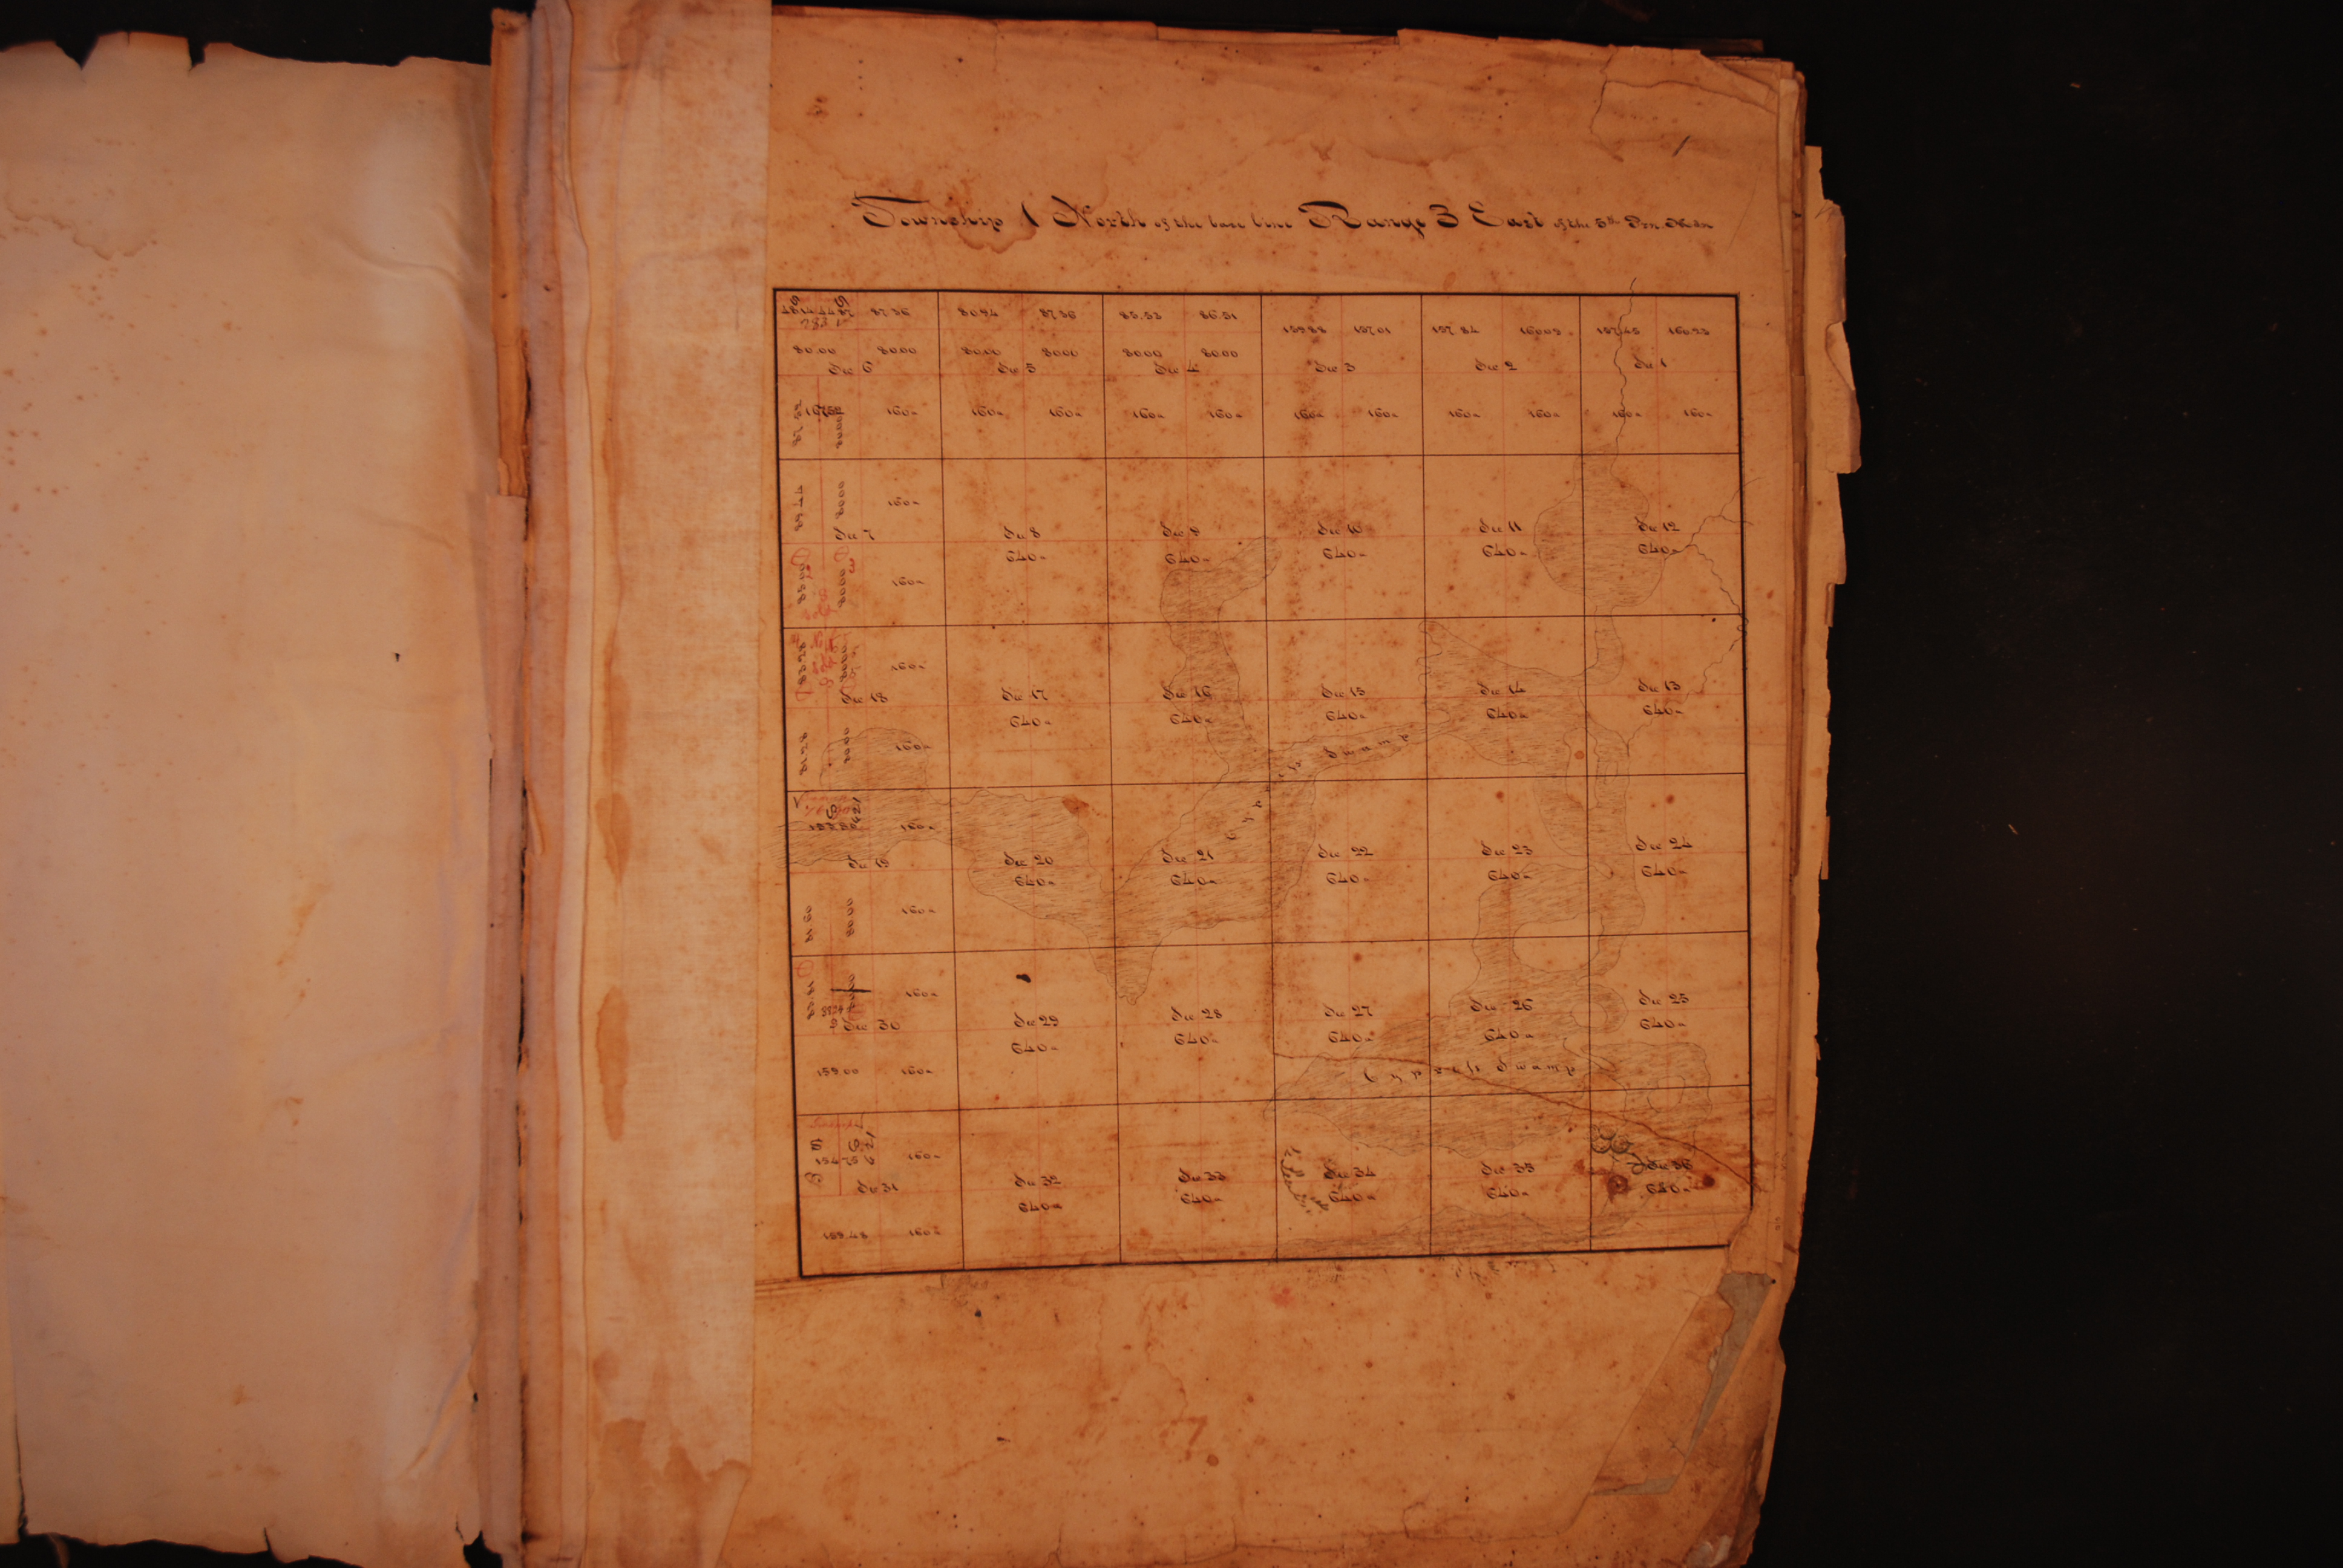 Township 1 North of the base line Range 3 East of the 5th Prn. Mdn
87.36 80.94 87.36 83.53 86.51
159.88 157.01 157.84 160.03 157.45 160.23
80.00 80.00 80.00 80.00 80.00 80.00
Sec 6 Sec 5 Sec 4 Sec 3 Sec 2 Sec 1
160 160 160 160 160 160 160 160 160 160 160
80.00
80.00 160
Sec 7 Sec 8 Sec 9 Sec 10 Sec 11 Sec 12
640 640 640 640 640
80.00 160
80.00 160
Sec 18 Sec 17 Sec 16 Sec 15 Sec 14 Sec 13
640 640 640 640 640
81.28 80.00 160
Cypress Swamp
160
Sec 19 Sec 20 Sec 21 Sec 22 Sec 23 Sec 24
640 640 640 640 640
81.60 80.00 160
160
Sec 30 Sec 29 Sec 28 Sec 27 Sec 26 Sec 25
640 640 640 640 640
159.00 160
Cypress Swamp
160
Sec 31 Sec 32 Sec 33 Sec 34 Sec 35 Sec 36
640 640 640 640 640
159.48 160